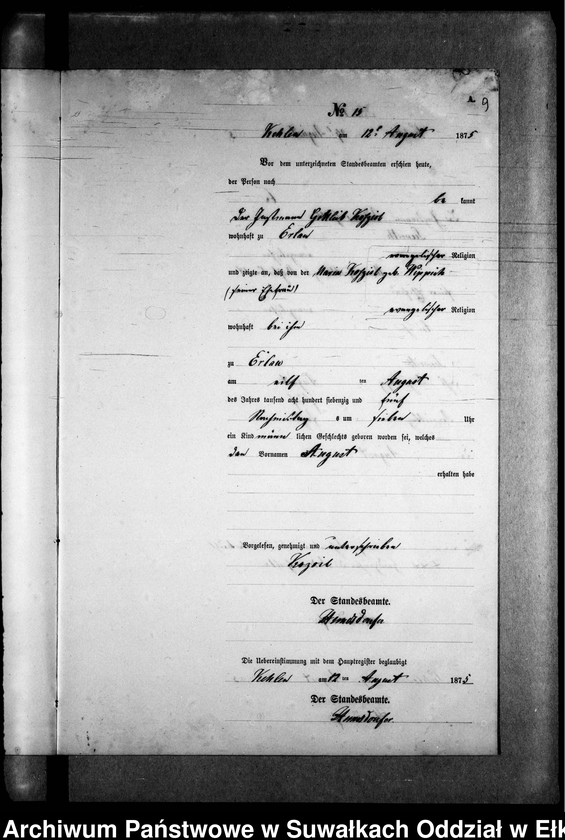 A.
9
No 15
Kehlen am 12t August 1875
Vor dem unterzeichneten Standesbeamten erschien heute,
der Person nach
be kannt
der Gottlieb
wohnhaft zu Erlau
evangelischer Religion
und zeigte an, daß von der Marie geb.
(seiner Ehefrau)
evangelischer Religion
wohnhaft bei ihm
zu Erlau
am eilf ten August
des Jahres tausend acht hundert siebenzig und fünf
Nachmittag s um sieben Uhr
ein Kind männ lichen Geschlechts geboren worden sei, welches
den Vornamen August
erhalten habe
Vorgelesen, genehmigt und unterschrieben
Der Standesbeamte.
Die Uebereinstimmung mit dem Hauptregister beglaubigt
Kehlen am 12 ten August 1875
Der Standesbeamte.
Archiwum Państwowe w Suwałkach Oddział w Ełk